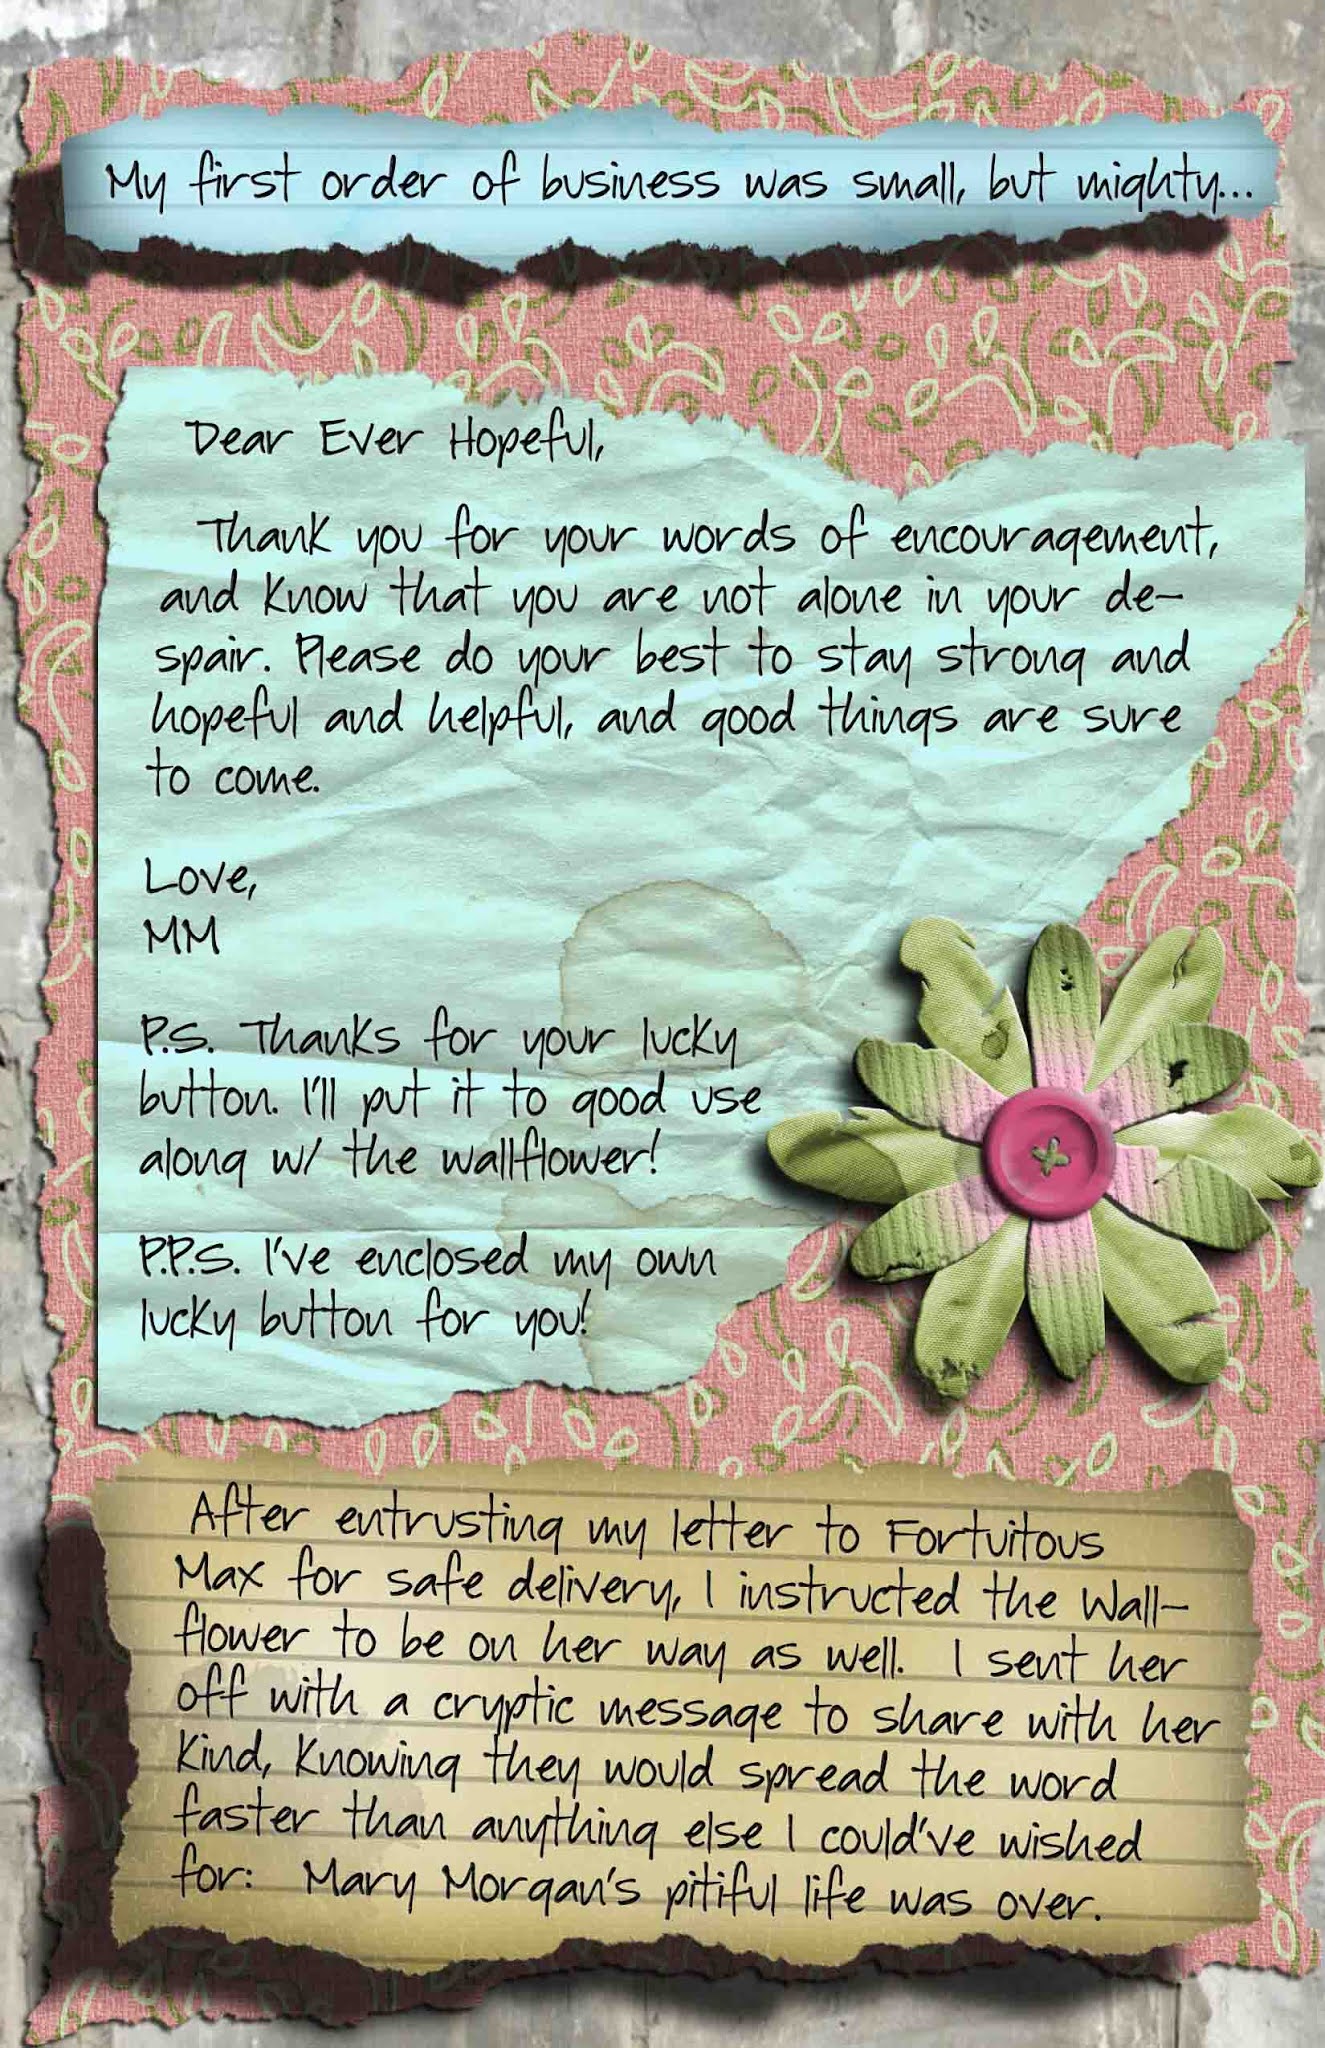 My first order of business was small, but mighty...
Dear Ever Hopeful,
Thank you for your words of encouragement,
and know that you are not alone in your de-
spair. Please do your best to stay strong and
hopeful and helpful, and good things are sure
to come.
Love,
MM
P.S. Thanks for your lucky
button. I'll put it to good use
along w/ the wallflower!
P.P.S. I've enclosed my own
lucky button for you!
After entrusting my letter to Fortuitous
Max for safe delivery, I instructed the Wall-
flower to be on her way as well. I sent her
off with a cryptic message to share with her
kind, knowing they would spread the word
faster than anything else I could've wished
for: Mary Morgan's pitiful life was over.